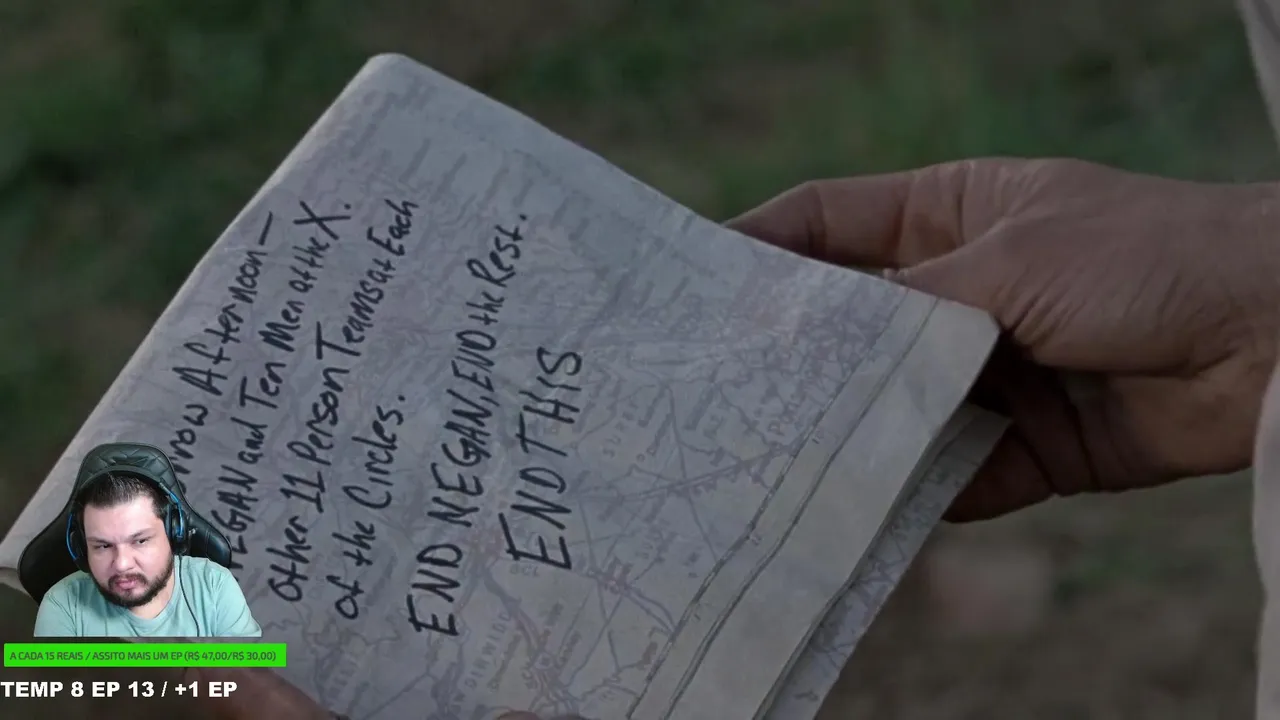 Afternoon —
and Ten Men at the X.
Other 11 Person Teams at Each
of the Circles.
END NEGAN, END the Rest.
END THIS
A CADA 15 REAIS / ASSITO MAIS UM EP (R$ 47,00/R$ 30,00)
TEMP 8 EP 13 / +1 EP